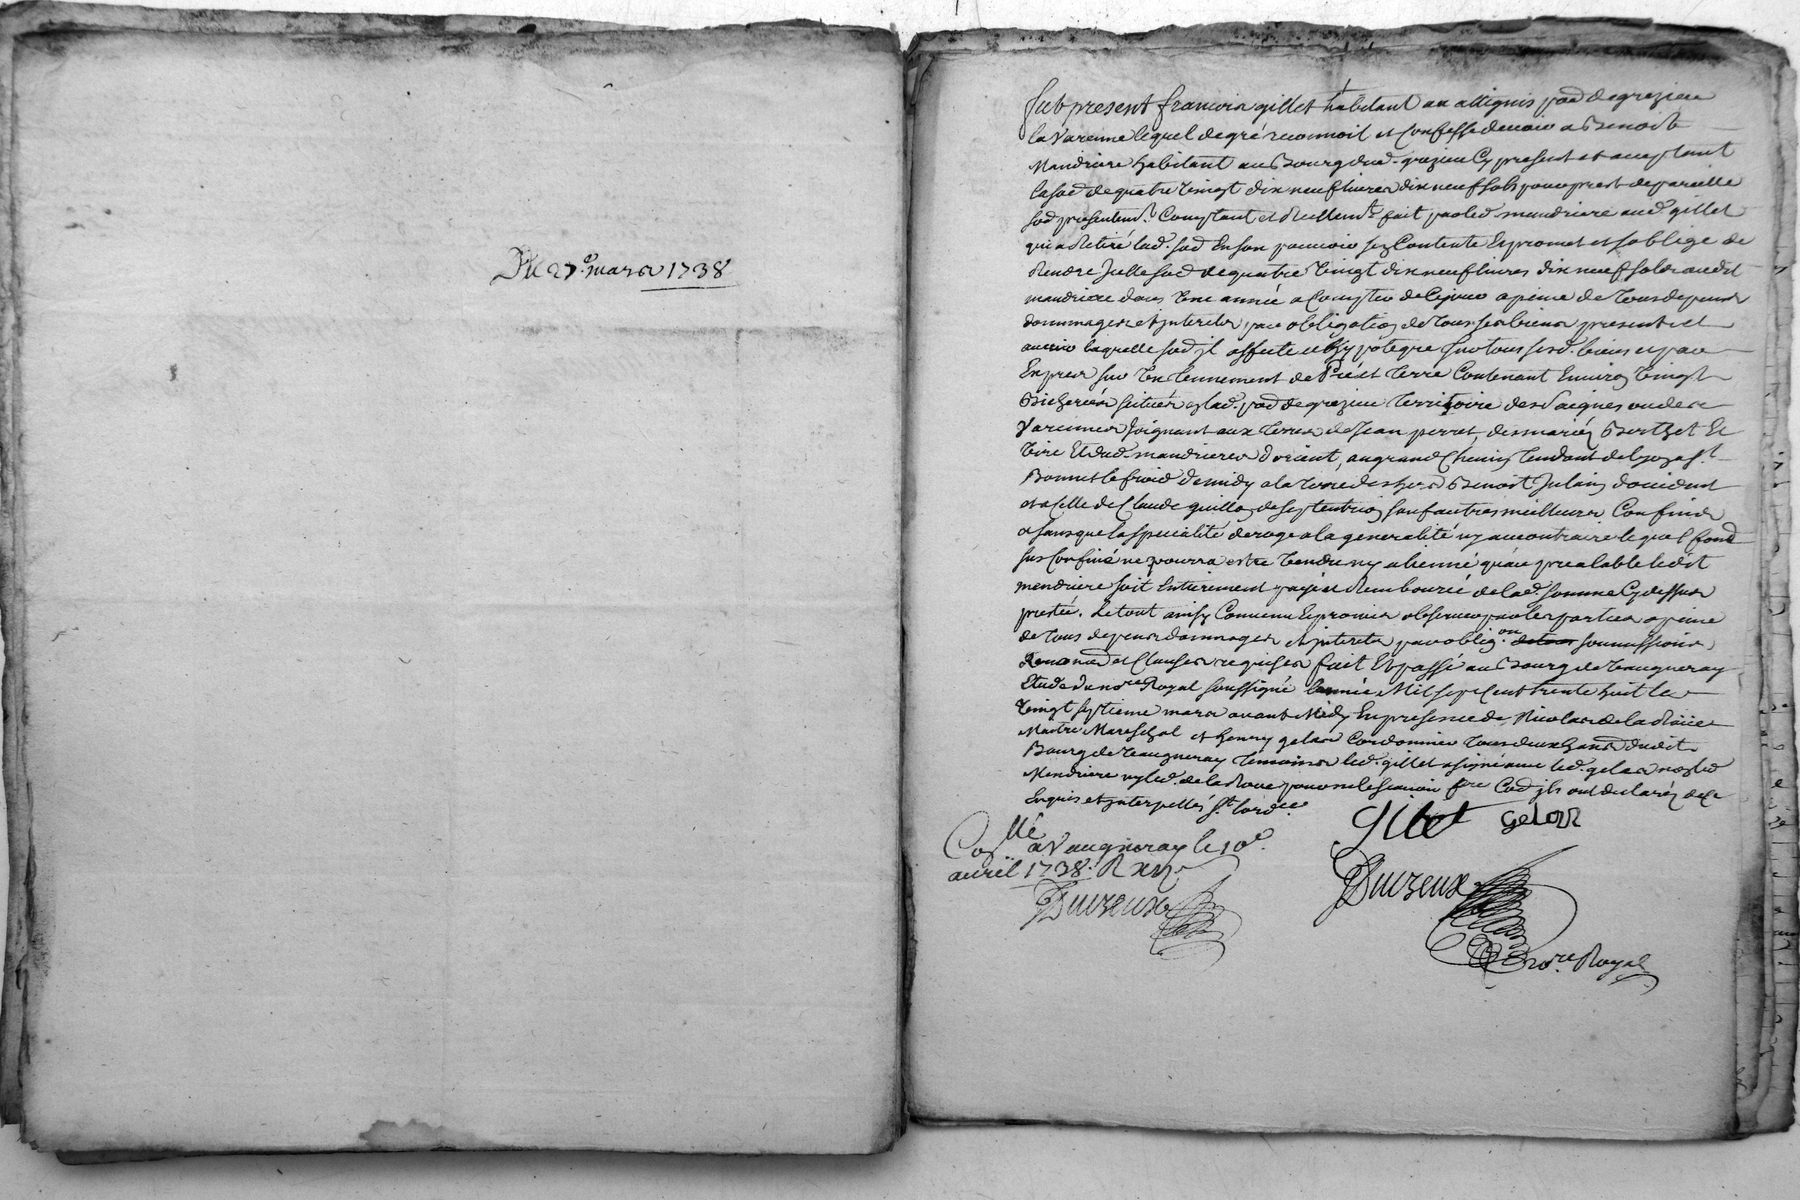 Du 27e. mars 1738
fut present francois gillet habitant au attignis par. de grezieu
la Varenne lequel de gré reconnoit et Confesse devoir a Benoist
Mandriere habitant au Bourg dud. grezieu Cy present et acceptant
la som. de quatre vingt dix neuf livres dix neuf sols pour prest de pareille
som. presentemt. Comptant et reellemt. fait par led. mandriere aud. gillet
qui a retiré lad. som. en son pouvoir sez Contente Et promet et soblige de
Rendre Jcelle som. de quatre vingt dix neuf livres dix neuf sols audit
mandriere dans une année a Compter de Cejour a peine de tous depens
dommages et Jnterets par obligation de tous ses biens presents et
avenir laquelle som. jl affecte et hypoteque sur tous sesd. biens et par
Expres sur un tennement de Pré et terre Contenant Environ vingt
Bicherées scituée en lad. par. de grezieu territoire des Saignes ou des
Varennes Joignant aux terres de Jean perret, des mariez Berthet Et
Et dud. mandrieres dorient, au grand Chemin tendant de lyon a St.
Bonnet le froid de midy a la terre des hers. Benoist Julain doccident
et a Celle de Claude guillon de septentrion sauf autres meilleurs Confins
a sans que la specialité deroge a la generalité ny au contraire lequel fond
sus Confiné ne pourra estre vendu ny alienné qu'au prealable ledit
mendriere soit Entierement payé et Rembourcé de lad. somme Cy dessus
prestée. Le tout ainsy Convenu Et promis observer par les parties a peine
de tous depens dommages et Jnterets par oblig.on soumissions,
Renonc.. et Clauses requises fait Et passé au Bourg de Vaugneray
Etude du nore Royal soussigné lannée Mil sept Cent trente huit le
vingt septieme mars avant Midy En presence de Nicolas de la Roüe
Maitre Mareschal et henry gelas Cordonnier tous deux hans. dudit
Bourg de Vaugneray temoins led. gillet a signé avec led. gelas non led
Mendriere ny led. de la Roue pour ne le scavoir fre Com. jls ont declaréz de ce
Enquis et Jnterpellés st. lordce.
Gilet gelas
Collé a Vaugneray le 10e.
avril 1738. R xijs.
Duizeux
Duizeux
nore. Royal